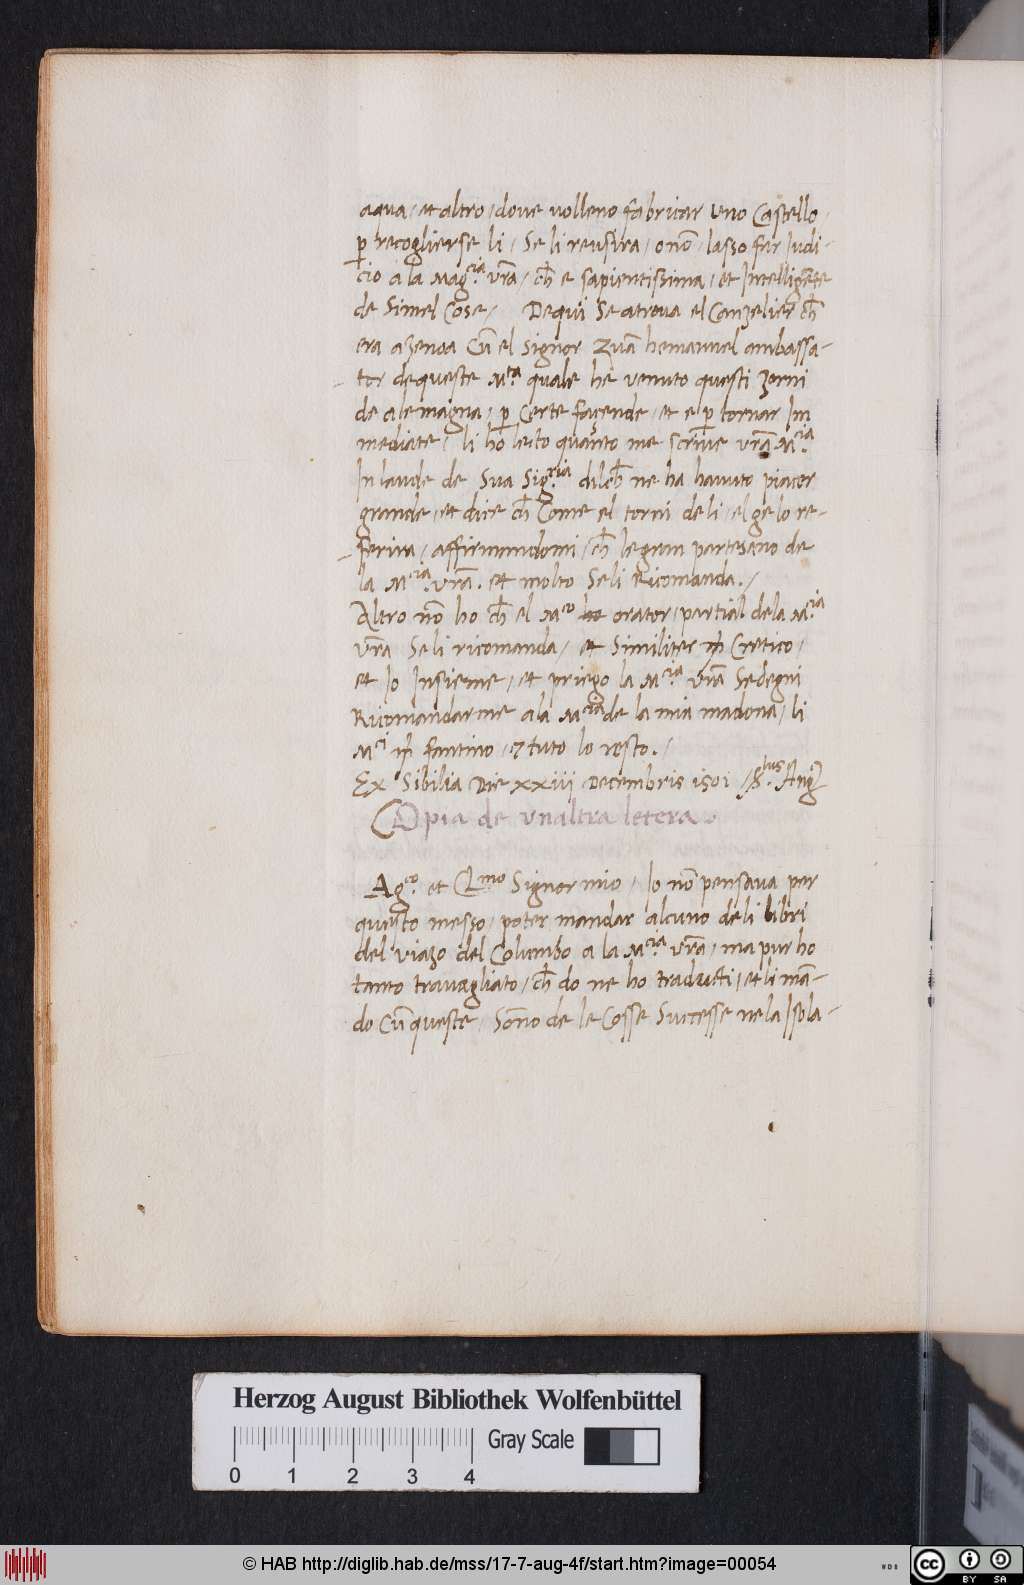 aqua / et altro / dove volleno fabricar uno Castello /
p̲ recoglierse li / Se li reusira / o nõ / lasso far Judi-
cio a la Mag.cia vr̃a / ch̃ e sapientissima / et Intelligẽte
de Simel Cose / Dequi Se atrova el Canzelier ch̃
era a zenoa Cũ el Signor Zuã hemanuel ambassa-
tor de queste M.ta quale he venuto questi zorni
de alemagna / p̲ Certe facende / et el p̲ tornar Im
mediate / li ho leto quanto me scrive vr̃a M.cia
In laude de Sua Sig.ria dilch̃ ne ha havuto piacer
grande / et dice ch̃ Come el torni de li / el gelo re-
ferira / affirmandomi / ch̃ le gran partesano de
la M.cia vr̃a . et molto Se li Ricomanda . /
Altro nõ ho ch̃ el M.co orator / partial dela M.cia
vr̃a Se li ricomanda / et Similiter Cretico /
et Io Insieme / et priego la M.cia vr̃a Se degni
Ricomandarme ala M.cia de la mia madona / li
M.ci fantino / 7 tuto lo resto . /
Ex Sibilia Die xxiii Decembris 1501 / S.tus Ang
COpia de unaltra letera .
Ag.co et Cl.mo Signor mio / Io nõ pensava per
questo messo / poter mandar alcuno de li libri
del viazo del Columbo a la M.cia vr̃a / ma pur ho
tanto travagliato / ch̃ do ne ho traducti / et li mã-
do Cũ queste / Sonno de le Cosse Successe ne la Isola-
Herzog August Bibliothek Wolfenbüttel
Gray Scale
0 1 2 3 4
© HAB http://diglib.hab.de/mss/17-7-aug-4f/start.htm?image=00054
WDB
cc BY SA